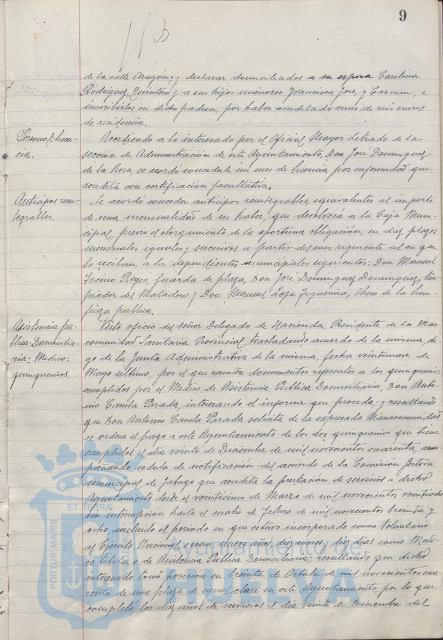 9
de la calle Aragón; y declarar domiciliados a su esposa Carolina
Rodríguez Quintero y a sus hijos menores Francisco, José y Carmen, e
inscribirlos en dicho padrón, por haber acreditado más de seis meses
de residencia.
Personal: licencia.
Accediendo a lo interesado por el Oficial Mayor Letrado de la
sección de Administración de este Ayuntamiento, Don José Domínguez
de la Rosa, se acordó concederle un mes de licencia por enfermedad que
acredita con certificación facultativa.
Anticipos reintegrables.
Se acordó conceder anticipos reintegrables equivalentes al importe
de una mensualidad de su haber, que devolverá a la Caja Municipal,
previo el otorgamiento de la oportuna obligación, en diez plazos
mensuales iguales y sucesivos a partir del mes siguiente al en que
lo reciban, a los dependientes municipales siguientes: Don Manuel
Reyes, Guarda de plaza, Don José Domínguez Domínguez, limpiador
del Matadero y Don Manuel, Obrero de la limpieza
pública.
Asistencia pública Domiciliaria: Médico: quinquenios.
Visto oficio del señor Delegado de Hacienda, Presidente de la Mancomunidad
Sanitaria Provincial, trasladando acuerdo de la misma
de la Junta Administrativa de la misma, fecha veintinueve de
Mayo último, por el que remite documentos referentes a los quinquenios
cumplidos por el Médico de Asistencia Pública Domiciliaria, Don Antonio
Parada, interesando el informe que proceda; y resultando
que Don Antonio Parada solicita de la expresada Mancomunidad
se ordene el pago a este Ayuntamiento de los dos quinquenios que tiene
cumplidos el día veinte de Diciembre de mil novecientos cuarenta, acompañando
cédula de notificación del acuerdo de la Comisión Gestora
municipal de Jabugo que acredita la prestación de servicios a dicho
Ayuntamiento desde el veinticinco de Marzo de mil novecientos veintiocho
sin interrupción hasta el cuatro de Febrero de mil novecientos treinta y
ocho, incluido el período en que estuvo incorporado como Voluntario
al Ejército Nacional, o sean nueve años diez meses, diez días como Médico
titular de Asistencia Pública Domiciliaria; resultando que dicho
interesado tomó posesión en treinta de Octubre de mil novecientos cuarenta
de una plaza de igual clase en este Ayuntamiento por lo que
completó los diez años de servicios el día veinte de Diciembre del
ET TERRA
PORTUS MARIS